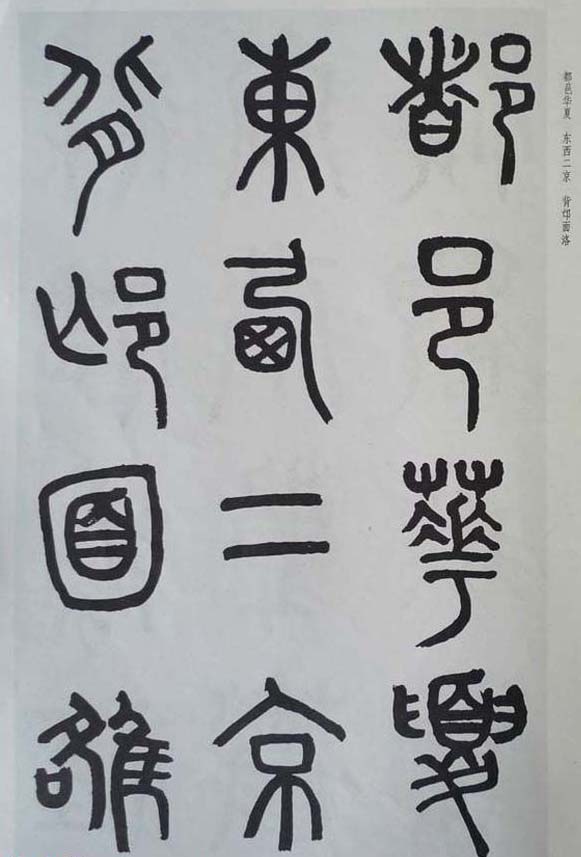 都邑华夏 东西二京 背邙面洛
都邑華夏
東西二京
背邙面雒